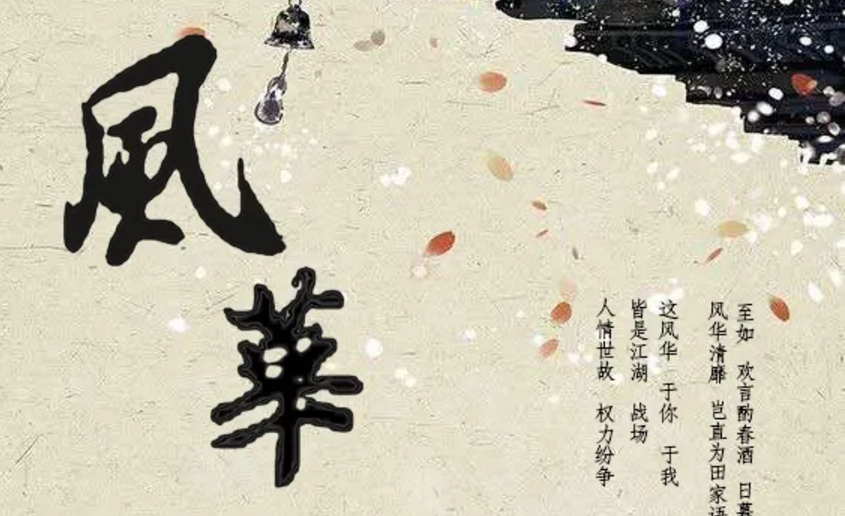 風華
至如 欢言酌春酒 日暮
风华清靡 岂直为田家语
这风华 于你 于我
皆是江湖 战场
人情世故 权力纷争